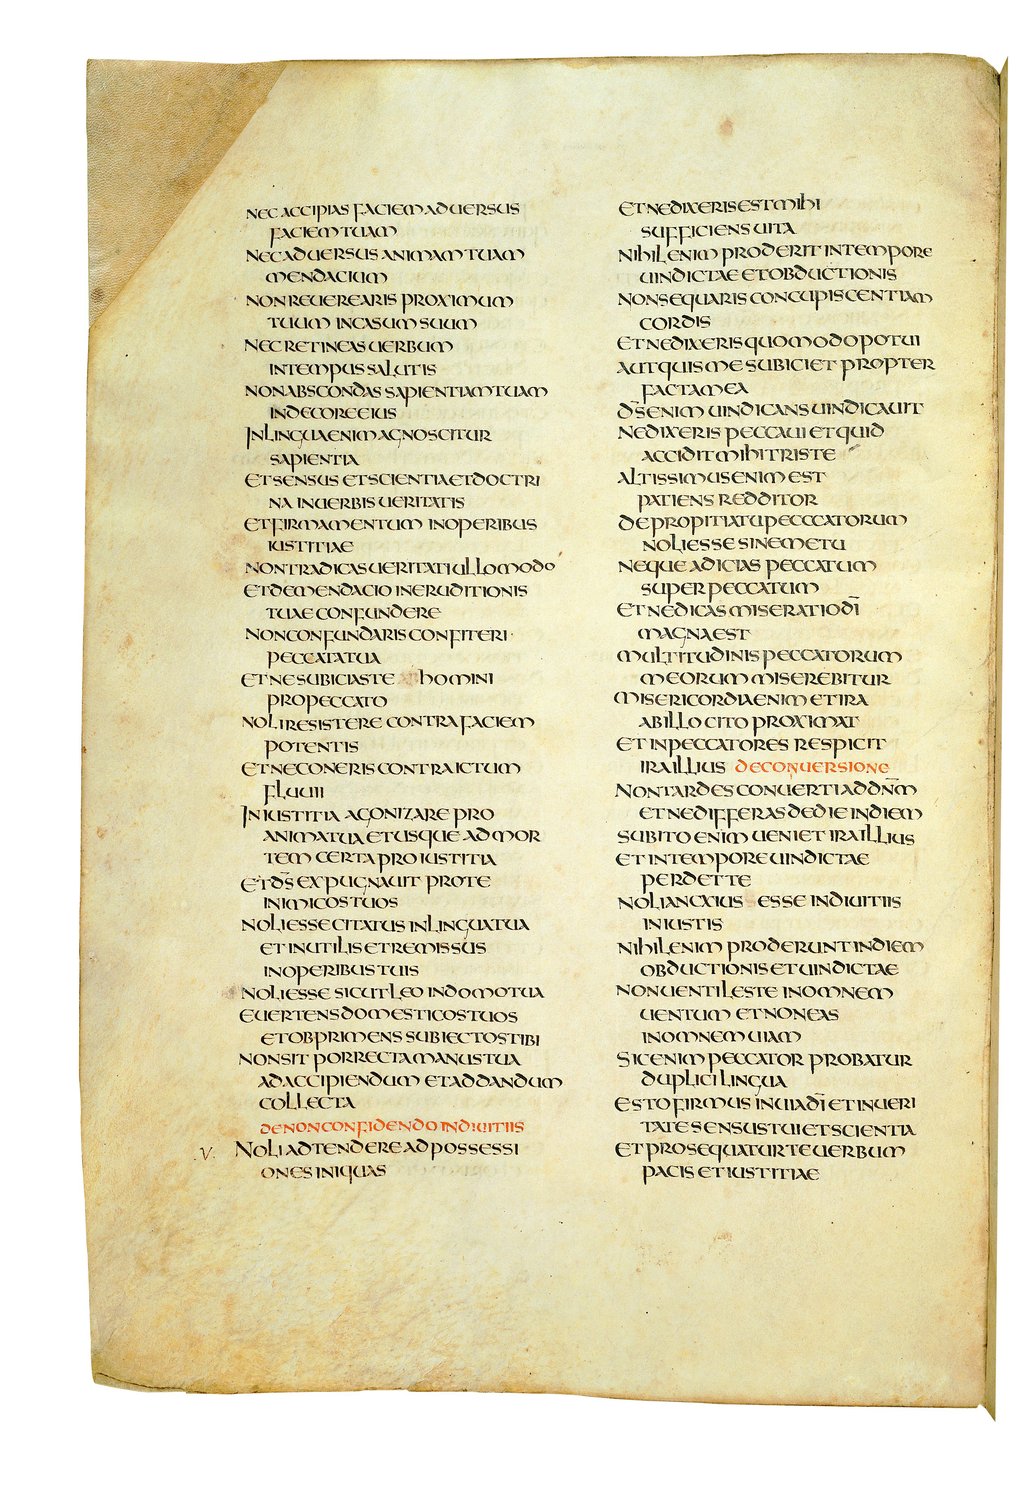 NEC ACCIPIAS FACIEM ADUERSUS
FACIEM TUAM
NEC ADUERSUS ANIMAM TUAM
MENDACIUM
NON REUEREARIS PROXIMUM
TUUM IN CASUM SUUM
NEC RETINEAS UERBUM
IN TEMPUS SALUTIS
NON ABSCONDAS SAPIENTIAM TUAM
IN DECORE EIUS
IN LINGUA ENIM AGNOSCITUR
SAPIENTIA
ET SENSUS ET SCIENTIA ET DOCTRI
NA IN UERBIS UERITATIS
ET FIRMAMENTUM IN OPERIBUS
IUSTITIAE
NON TRADICAS UERITATI ULLO MODO
ET DE MENDACIO INERUDITIONIS
TUAE CONFUNDERE
NON CONFUNDARIS CONFITERI
PECCATA TUA
ET NE SUBICIAS TE HOMINI
PRO PECCATO
NOLI RESISTERE CONTRA FACIEM
POTENTIS
ET NE CONERIS CONTRA ICTUM
FLUUII
IN IUSTITIA AGONIZARE PRO
ANIMA TUA ET USQUE AD MOR
TEM CERTA PRO IUSTITIA
ET D̅S̅ EXPUGNAUIT PRO TE
INIMICOS TUOS
NOLI ESSE CITATUS IN LINGUA TUA
ET INUTILIS ET REMISSUS
IN OPERIBUS TUIS
NOLI ESSE SICUT LEO IN DOMO TUA
EUERTENS DOMESTICOS TUOS
ET OBPRIMENS SUBIECTOS TIBI
NON SIT PORRECTA MANUS TUA
AD ACCIPIENDUM ET AD DANDUM
COLLECTA
DE NON CONFIDENDO IN DIUITIIS
V. NOLI ADTENDERE AD POSSESSI
ONES INIQUAS
ET NE DIXERIS EST MIHI
SUFFICIENS UITA
NIHIL ENIM PRODERIT IN TEMPORE
UINDICTAE ET OBDUCTIONIS
NON SEQUARIS CONCUPISCENTIAM
CORDIS
ET NE DIXERIS QUOMODO POTUI
AUT QUIS ME SUBICIET PROPTER
FACTA MEA
D̅S̅ ENIM UINDICANS UINDICAUIT
NE DIXERIS PECCAUI ET QUID
ACCIDIT MIHI TRISTE
ALTISSIMUS ENIM EST
PATIENS REDDITOR
DE PROPITIATU PECCCATORUM
NOLI ESSE SINE METU
NEQUE ADICIAS PECCATUM
SUPER PECCATUM
ET NE DICAS MISERATIO D̅I̅
MAGNA EST
MULTITUDINIS PECCATORUM
MEORUM MISEREBITUR
MISERICORDIA ENIM ET IRA
AB ILLO CITO PROXIMAT
ET IN PECCATORES RESPICIT
IRA ILLIUS DE CONUERSIONE
NON TARDES CONUERTI AD D̅N̅M̅
ET NE DIFFERAS DE DIE IN DIEM
SUBITO ENIM UENIET IRA ILLIUS
ET IN TEMPORE UINDICTAE
PERDET TE
NOLI ANCXIUS ESSE IN DIUITIIS
INIUSTIS
NIHIL ENIM PRODERUNT IN DIEM
OBDUCTIONIS ET UINDICTAE
NON UENTILES TE IN OMNEM
UENTUM ET NON EAS
IN OMNEM UIAM
SIC ENIM PECCATOR PROBATUR
DUPLICI LINGUA
ESTO FIRMUS IN UIA D̅I̅ ET IN UERI
TATE SENSUS TUI ET SCIENTIA
ET PROSEQUATUR TE UERBUM
PACIS ET IUSTITIAE